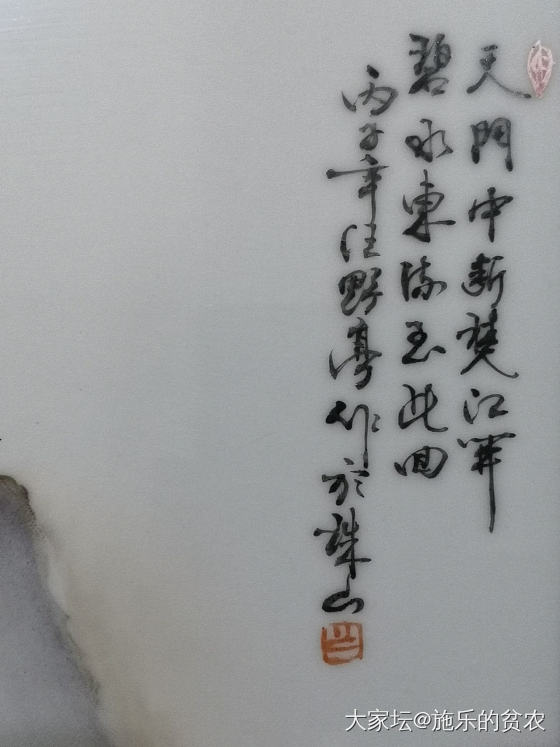 天門中斷楚江開
碧水東流至此回
丙子年汪野亭作於珠山
大家坛@施乐的贫农